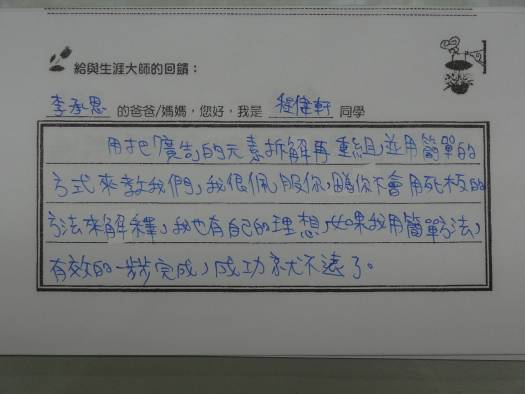 給與生涯大師的回饋：
李承恩 的爸爸/媽媽，您好，我是 程健軒 同學
用把「廣告」的元素拆解再重組，並用簡單的
方式來教我們，我很佩服你，因為你不會用死板的
方法來解釋，我也有自己的理想，如果我用簡單方法，
有效的一步步完成，成功就不遠了。